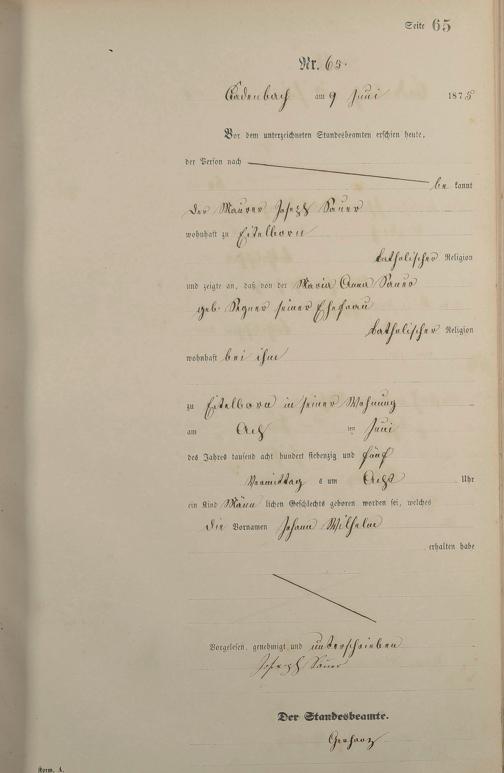 Seite 65
Nr. 65.
Cadenbach am 9 Juni 1875
Vor dem unterzeichneten Standesbeamten erschien heute,
der Person nach
be kannt
der Maurer Joseph Sauer
wohnhaft zu Eitelborn
katholischer Religion
und zeigte an, daß von der Maria Anna Sauer
geb. Segner seiner Ehefrau
katholischer Religion
wohnhaft bei ihm
zu Eitelborn in seiner Wohnung
am ten Juni
des Jahres tausend acht hundert siebenzig und fünf
Vormittag s um Acht Uhr
ein Kind Männ lichen Geschlechts geboren worden sei, welches
die Vornamen Johann Wilhelm
erhalten habe
Vorgelesen, genehmigt und unterschrieben
Joseph Sauer
Der Standesbeamte.
Gerharz
Form. A.